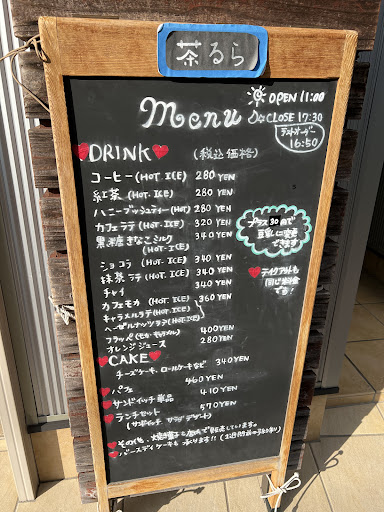 茶るら
Menu
OPEN 11:00
CLOSE 17:30
ラストオーダー
16:50
DRINK
(税込価格)
コーヒー (HOT. ICE) 280 YEN
紅茶 (HOT. ICE) 280 YEN
ハニーブッシュティー (HOT) 280 YEN
カフェラテ (HOT. ICE) 320 YEN
黒糖きなこミルク 340 YEN
(HOT. ICE)
ショコラ (HOT. ICE) 340 YEN
抹茶ラテ (HOT. ICE) 340 YEN
チャイ 340 YEN
カフェモカ (HOT. ICE) 360 YEN
キャラメルラテ (HOT. ICE)
ヘーゼルナッツラテ (HOT. ICE)
フラッペ (モカ・キャラメル) 400 YEN
オレンジジュース 280 YEN
プラス30円で
豆乳に変更
できます
テイクアウトも
同じ料金
で!
CAKE
チーズケーキ、ロールケーキなど 340 YEN
パフェ 460 YEN
サンドイッチ単品 410 YEN
ランチセット 570 YEN
(サンドイッチ サラダ デザート)
その他、焼菓子も店内で販売しています。
バースデイケーキも承ります!!